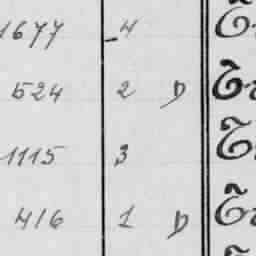 1677 4
524 2 D
1115 3
416 1 D